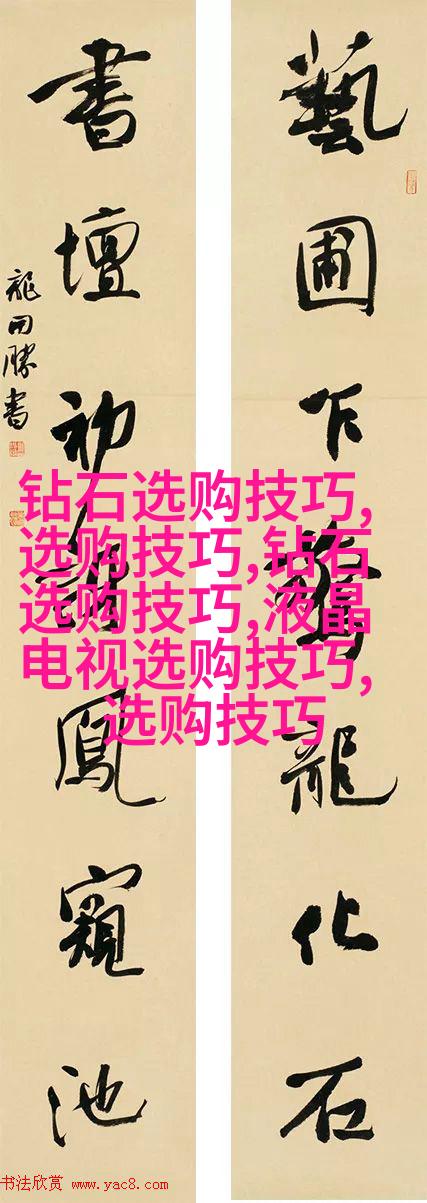 藝圃乍龍化石
書壇初鳳窺池
龍開勝書
钻石选购技巧,
选购技巧,钻石
选购技巧,液晶
电视选购技巧,
选购技巧
书法欣赏 www.yac8.com